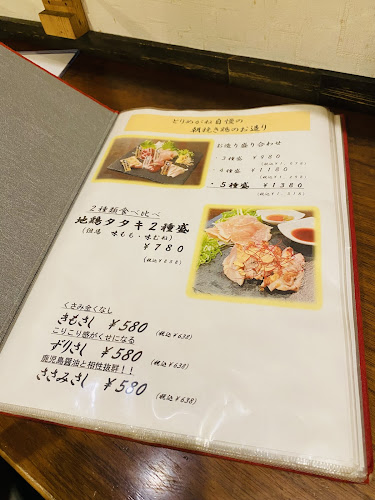 とりめがね自慢の
朝挽き鶏のお造り
お造り盛り合わせ
・3種盛 ¥980
・4種盛 ¥1180
・5種盛 ¥1380
2種類食べ比べ
地鶏タタキ2種盛
(但馬 味もも・味むね)
¥780
(税込¥858)
くさみ全くなし
きもさし ¥580 (税込¥638)
こりこり感がくせになる
ずりさし ¥580 (税込¥638)
鹿児島醤油と相性抜群!!
ささみさし ¥580
(税込¥638)